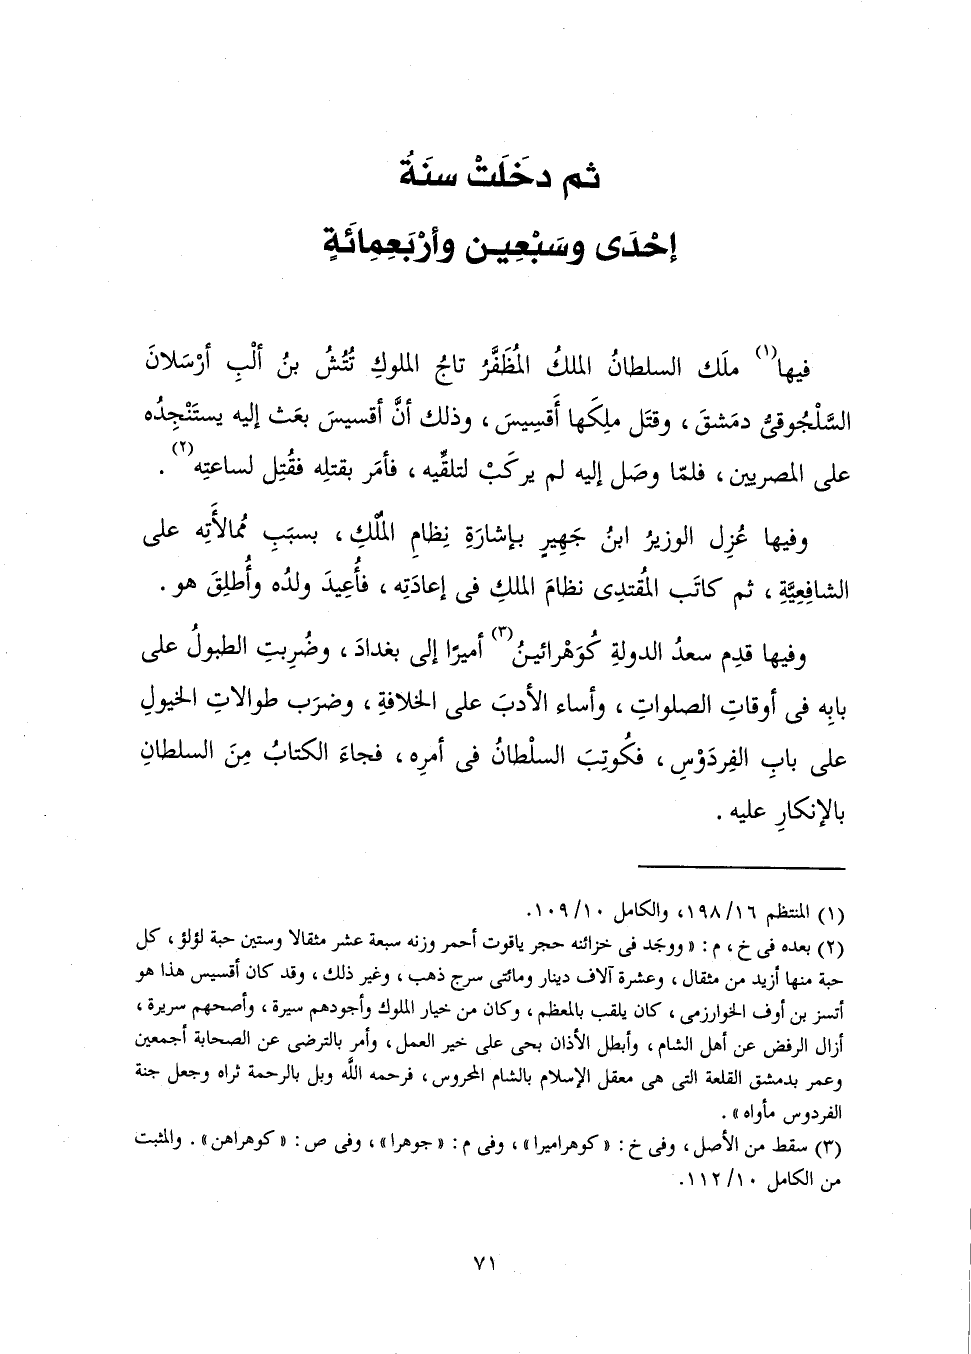 ثم دخَلَتْ سنَةُ
إحْدَى وسَبْعِين وأرْبَعِمِائَةٍ
فيها(١) ملَك السلطانُ الملكُ المُظَفَّرُ تاجُ الملوكِ تُتُشُ بنُ ألْبِ أرْسَلانَ
السَّلْجُوقىُّ دمَشقَ ، وقتَل ملِكَها أَقسِيسَ ، وذلك أنَّ أقسيسَ بعَث إليه يستَنْجِدُه
على المصريين ، فلمّا وصَل إليه لم يركَبْ لتلقِّيه ، فأمَر بقتلِه فقُتِل لساعتِه(٢) .
وفيها عُزِل الوزيرُ ابنُ جَهِيرٍ بإشارَةِ نِظامِ المُلْكِ ، بسبَبِ مُمالأَتِه على
الشافِعِيَّةِ ، ثم كاتَب المُقتدِى نظامَ الملكِ فى إعادَتِه ، فأُعِيدَ ولدُه وأُطلِقَ هو .
وفيها قدِم سعدُ الدولةِ كُوَهْرائينُ(٣) أميرًا إلى بغدادَ ، وضُرِبتِ الطبولُ على
بابِه فى أوقاتِ الصلواتِ ، وأساء الأدبَ على الخلافةِ ، وضرَب طوالاتِ الخيولِ
على بابِ الفِردَوْسِ ، فكُوتِبَ السلْطانُ فى أمرِه ، فجاءَ الكتابُ مِنَ السلطانِ
بالإنكارِ عليه .
(١) المنتظم ١٦/ ١٩٨، والكامل ١٠/ ١٠٩.
(٢) بعده فى خ ، م : « ووجَد فى خزائنه حجر ياقوت أحمر وزنه سبعة عشر مثقالا وستين حبة لؤلؤ ، كل
حبة منها أزيد من مثقال ، وعشرة آلاف دينار ومائتى سرج ذهب ، وغير ذلك ، وقد كان أقسيس هذا هو
أتسز بن أوف الخوارزمى ، كان يلقب بالمعظم ، وكان من خيار الملوك وأجودهم سيرة ، وأصحهم سريرة ،
أزال الرفض عن أهل الشام ، وأبطل الأذان بحى على خير العمل ، وأمر بالترضى عن الصحابة أجمعين
وعمر بدمشق القلعة التى هى معقل الإسلام بالشام المحروس ، فرحمه اللَّه وبل بالرحمة ثراه وجعل جنة
الفردوس مأواه » .
(٣) سقط من الأصل ، وفى خ : « كوهراميرا » ، وفى م : « جوهرا » ، وفى ص : « كوهراهن » . والمثبت
من الكامل ١٠/ ١١٢.
٧١